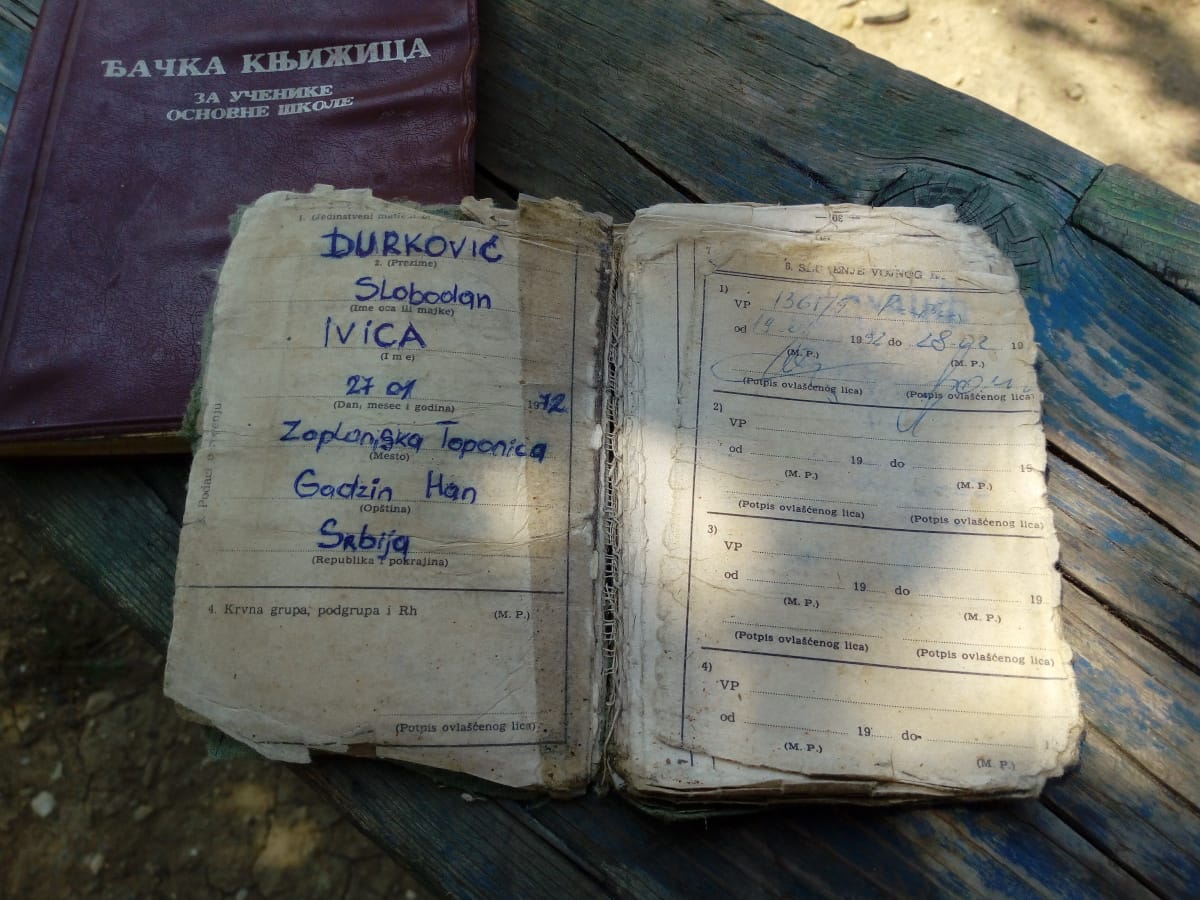 ЂАЧКА КЊИЖИЦА
ЗА УЧЕНИКЕ
ОСНОВНЕ ШКОЛЕ
ĐURKOVIĆ
2. (Prezime)
Slobodan
(Ime oca ili majke)
IVICA
(Ime)
27 01
(Dan, mesec i godina) 1972
Zaplanjska Toponica
(Mesto)
Gadzin Han
(Opština)
Srbija
(Republika i pokrajina)
4. Krvna grupa, podgrupa i Rh (M. P.)
(Potpis ovlašćenog lica)
7
1)
VP
od 1992 do 28.02 19
(M. P.) (M. P.)
(Potpis ovlašćenog lica) (Potpis ovlašćenog lica)
2)
VP
od 19 do 19
(M. P.) (M. P.)
(Potpis ovlašćenog lica) (Potpis ovlašćenog lica)
3)
VP
od 19 do 19
(M. P.) (M. P.)
(Potpis ovlašćenog lica) (Potpis ovlašćenog lica)
4)
VP
od 19 do
(M. P.) (M. P.)